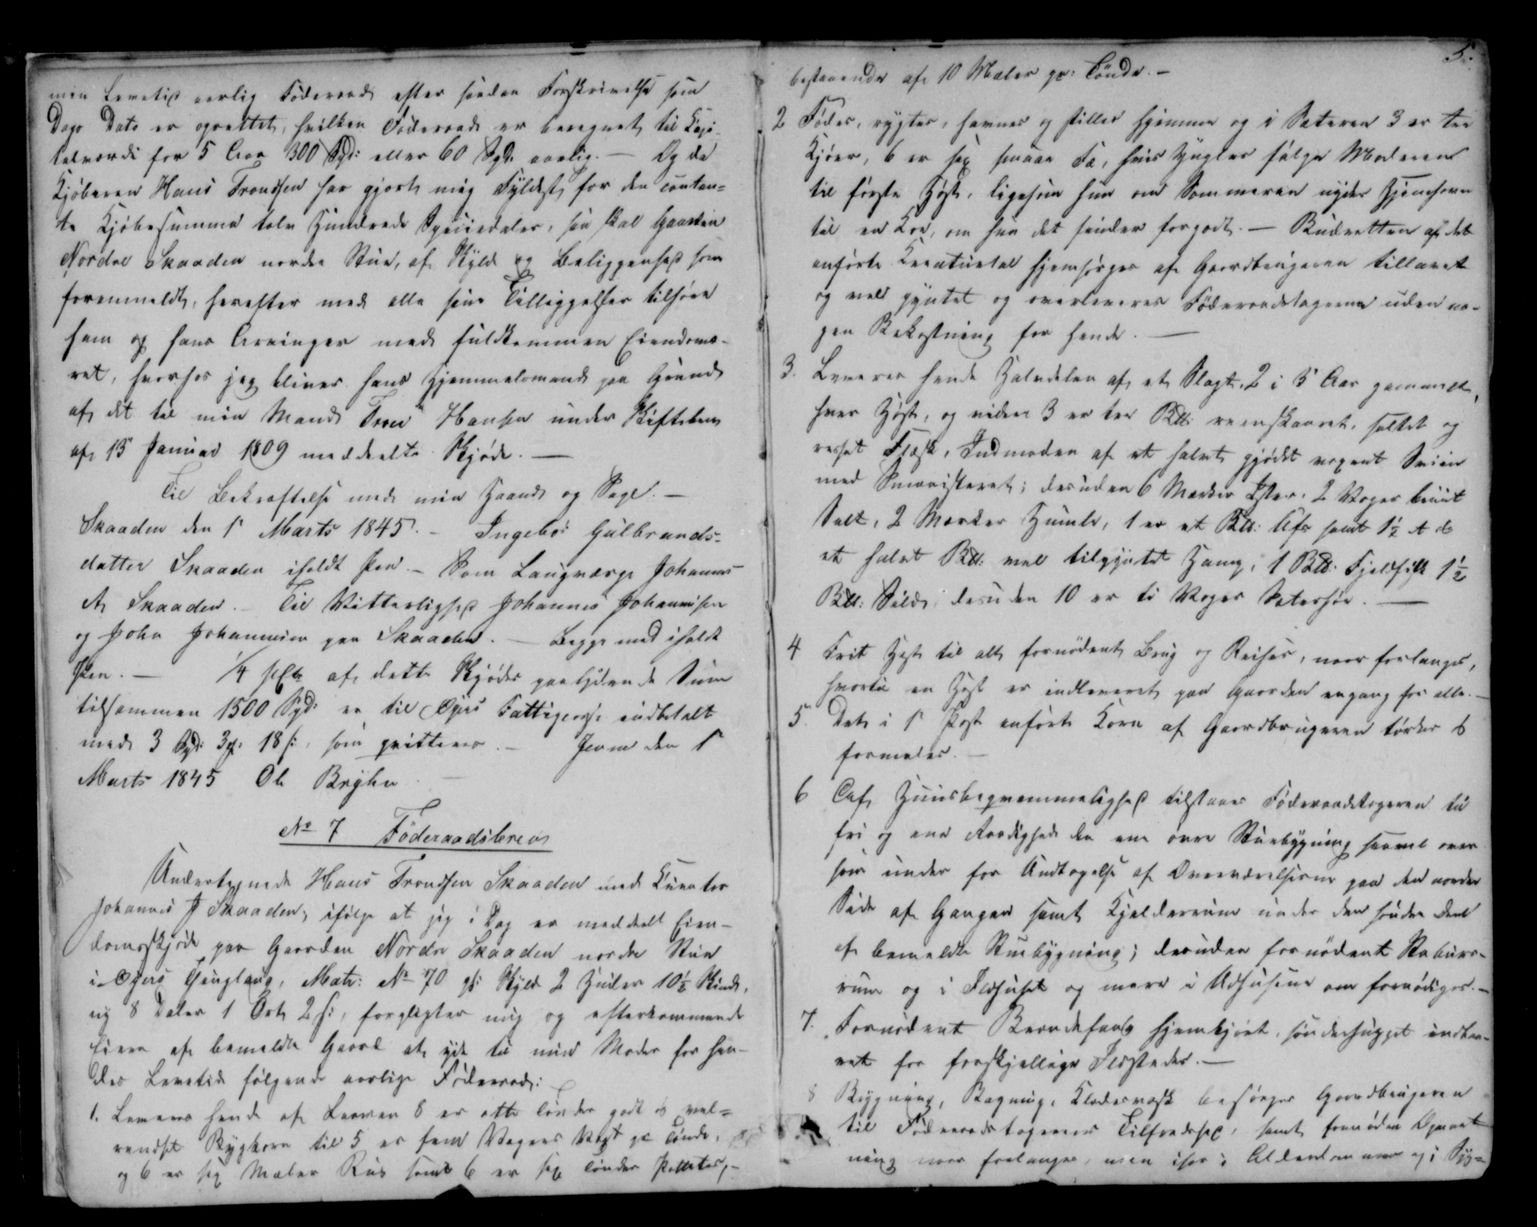 min Levetid aarlig Föderaad efter særdan Forskrivelse som
Dags Dato er oprettet, hvilken Föderaad er beregnet til Capi-
talværdi for 5 Aar 300 Spd: eller 60 Spd. aarlig. — Og da
Kjöberen Hans Trondsen har gjort mig Fyldest for den contan-
te Kjöbesumma tolv Hundrede Speciedaler, saa skal Gaarden
Nordre Skaaden nordre Stue, af Skyld og Beliggenhed som
formeldt, herefter med alle sine Tilliggelser tilhöre
ham og hans Arvinger med fuldkommen Eiendoms-
ret, hvorhos jeg bliver hans Hjemmelsmand paa Grund
af det til min Mand Trond Hansen under Skiftebrev
af 13 Januar 1809 meddeelte Skjöde. —
Til Bekræftelse med min Haand og Segl. —
Skaaden den 1 Marts 1845. — Ingebor Gulbrands-
datter Skaaden iholdt Pen. — Som Laugværge Johannes
A Skaaden. — Til Vitterlighed Johannes Johannesen
og John Johannesen paa Skaaden. — Begge med iholdt
Pen. — 1/4 pCt. af dette Skjödes paalydende Sum
tilsammen 1500 Spd: er til Öiers Fattigcasse indbetalt
med 3 Spd: 3 ort: 18 s:, som qvitteres. — Jevne den 1
Marts 1845 Ol: Bryhn —
No 7 Föderaadsbrev
Undertegnede Hans Trondsen Skaaden med Curator
Johannes J Skaaden, ifölge at jeg i Dag er meddeelt Eien-
domsskjöde paa Gaarden Nordre Skaaden nordre Stue
i Öiers Thinglaug, Matr: No 70 gl: Skyld 2 Huder 10½ Skind,
ny 8 Daler 1 Ort 2 s:, forpligter mig og efterkommende
Eiere af bemeldte Gaard at yde til min Moder for hen-
des Levetid fölgende aarlige Föderaad:
1. Leveres hende af Laaven 8 er otte Tönder godt og vel-
rendset Bygkorn til 5 er fem Vogers Vegt pr Tönde,
og 6 er sex Mæler Rug samt 6 er sex Tönder Potetes,
5.
bestaaende af 10 Mæler pr: Tönde. —
2 Födes, rygtes, havnes og stilles hjemme og i Sæteren 3 er tre
Kjöer, 6 er sex smaae Fæ, hvis Yngler fölge Moderen
til förste Höst, ligesom hun om Sommeren nyder Hjemhavn
til en Koe, om hun det finder forgodt. — Budraatten af det
anförte Kreaturtal hjemsörges af Gaardbrugeren tillavet
og vel pyntet og overleveres Föderaadstageren uden no-
gen Bekostning for hende. —
3. Leveres hende Halvdelen af et Slagt, 2 i 3 Aar gammelt,
hver Höst, og videre 3 er tre Bll: reenskaaret, saltet og
Flæsk, Indmaden af et halvt gjödt voxent Sviin
med Smaaisteret; desuden 6 Mærker Ister, 2 Voger hviit
Salt, 2 Mærker Humle, 1 er et Bll: samt 1½ et &
et halvt Bll: vel tilpyntet Hamp, 1 Bll: Fjeldfisk 1½
Bll: Sild, desuden 10 er ti Voger Sæterhöe. —
4 Frit Hest til alt fornödent Brug og Reiser, naar forlanges,
hvortil en Hest er indleveret paa Gaarden engang for alle. —
5. Det i 1 Post anförte Korn af Gaardbrugeren törkes og
formales. —
6 Af Huusbeqvemmelighed tilstaaes Föderaadstageren til
fri og ene Raadighed den ene övre Stuebygning saavel over
som under for Undtagelse af Overværelserne paa den nordre
Side af Gangen samt Kjelderrum under den söndre Deel
af bemeldte Stuebygning; desuden fornödent Staburs-
rum og i Fæhuset og mere i Udhusene om fornödiges. —
7. Fornödent Brændefang hjemkjört, sönderhugget indbaa-
ret for forskjellige Ildsteder. —
8 Brygning, Bagning, Klædervask besörges Gaardbrugeren
til Föderaadstagerens Tilfredshed, samt fornöden Opvart-
ning naar forlanges, men især i Alderdommen og i Syg-